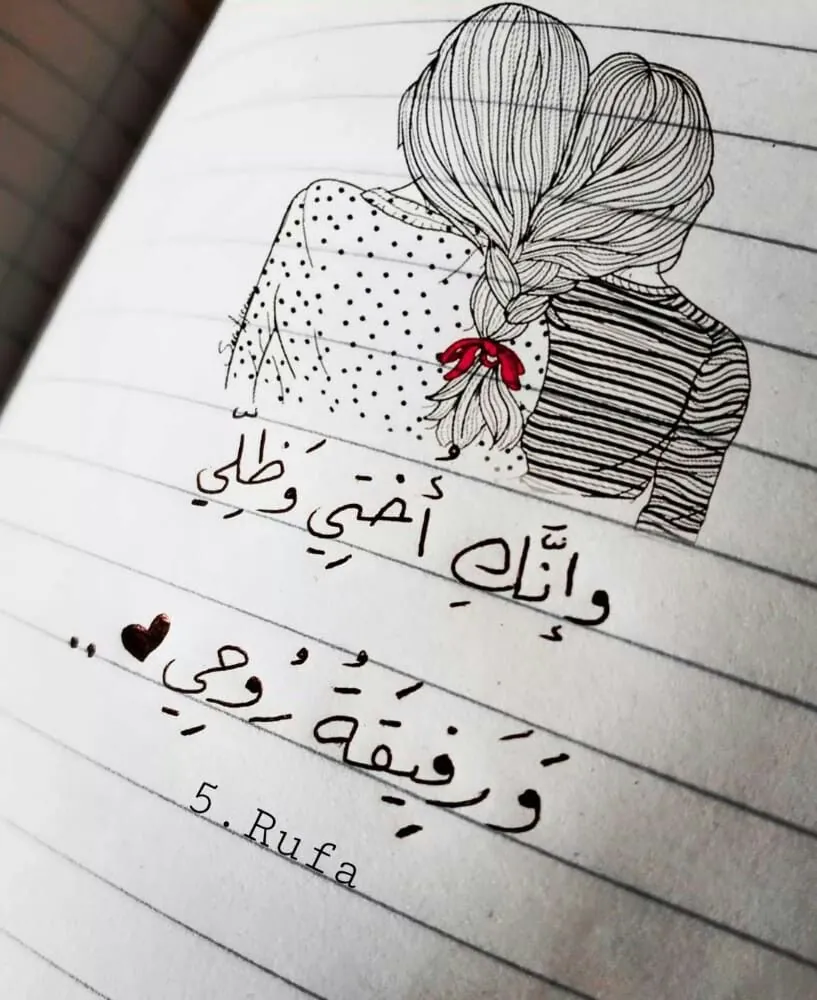 وَإِنَّكِ أُختِي وَظِلِّي
وَرَفِيقَةُ رُوحِي ♥ ..
5.Rufa